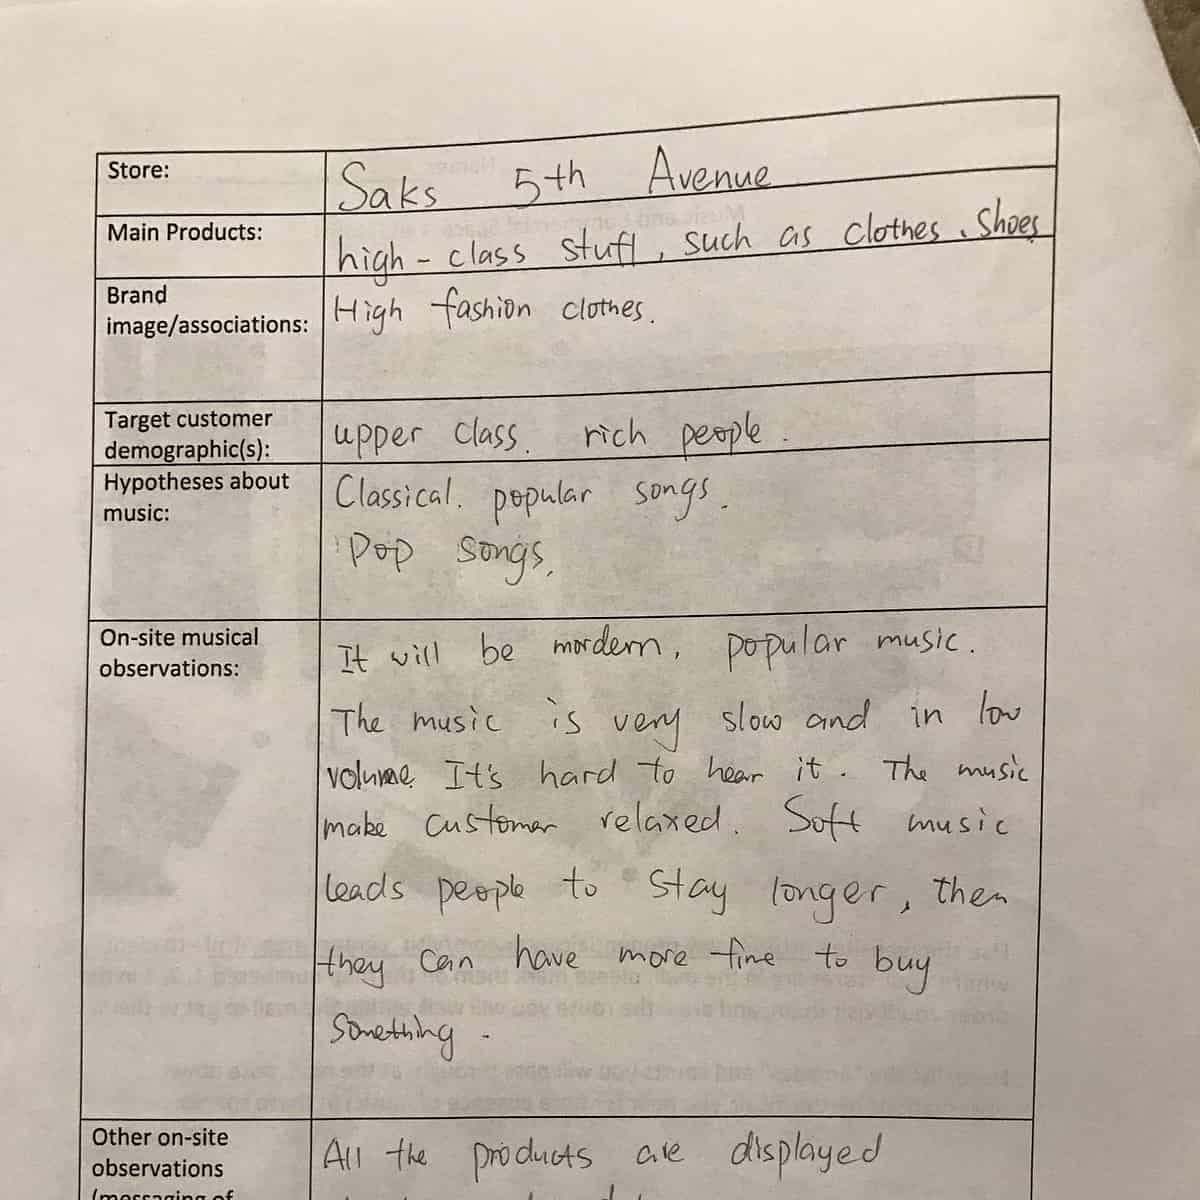 Store: Saks 5th Avenue
Main Products: high-class stuff, such as clothes、Shoes
Brand image/associations: High fashion clothes.
Target customer demographic(s): upper class. rich people.
Hypotheses about music: Classical. popular songs.
Pop songs.
On-site musical observations: It will be mordern, popular music.
The music is very slow and in low
volume. It's hard to hear it. The music
make customer relaxed. Soft music
leads people to stay longer, then
they can have more time to buy
something.
Other on-site observations (messaging of All the products are displayed